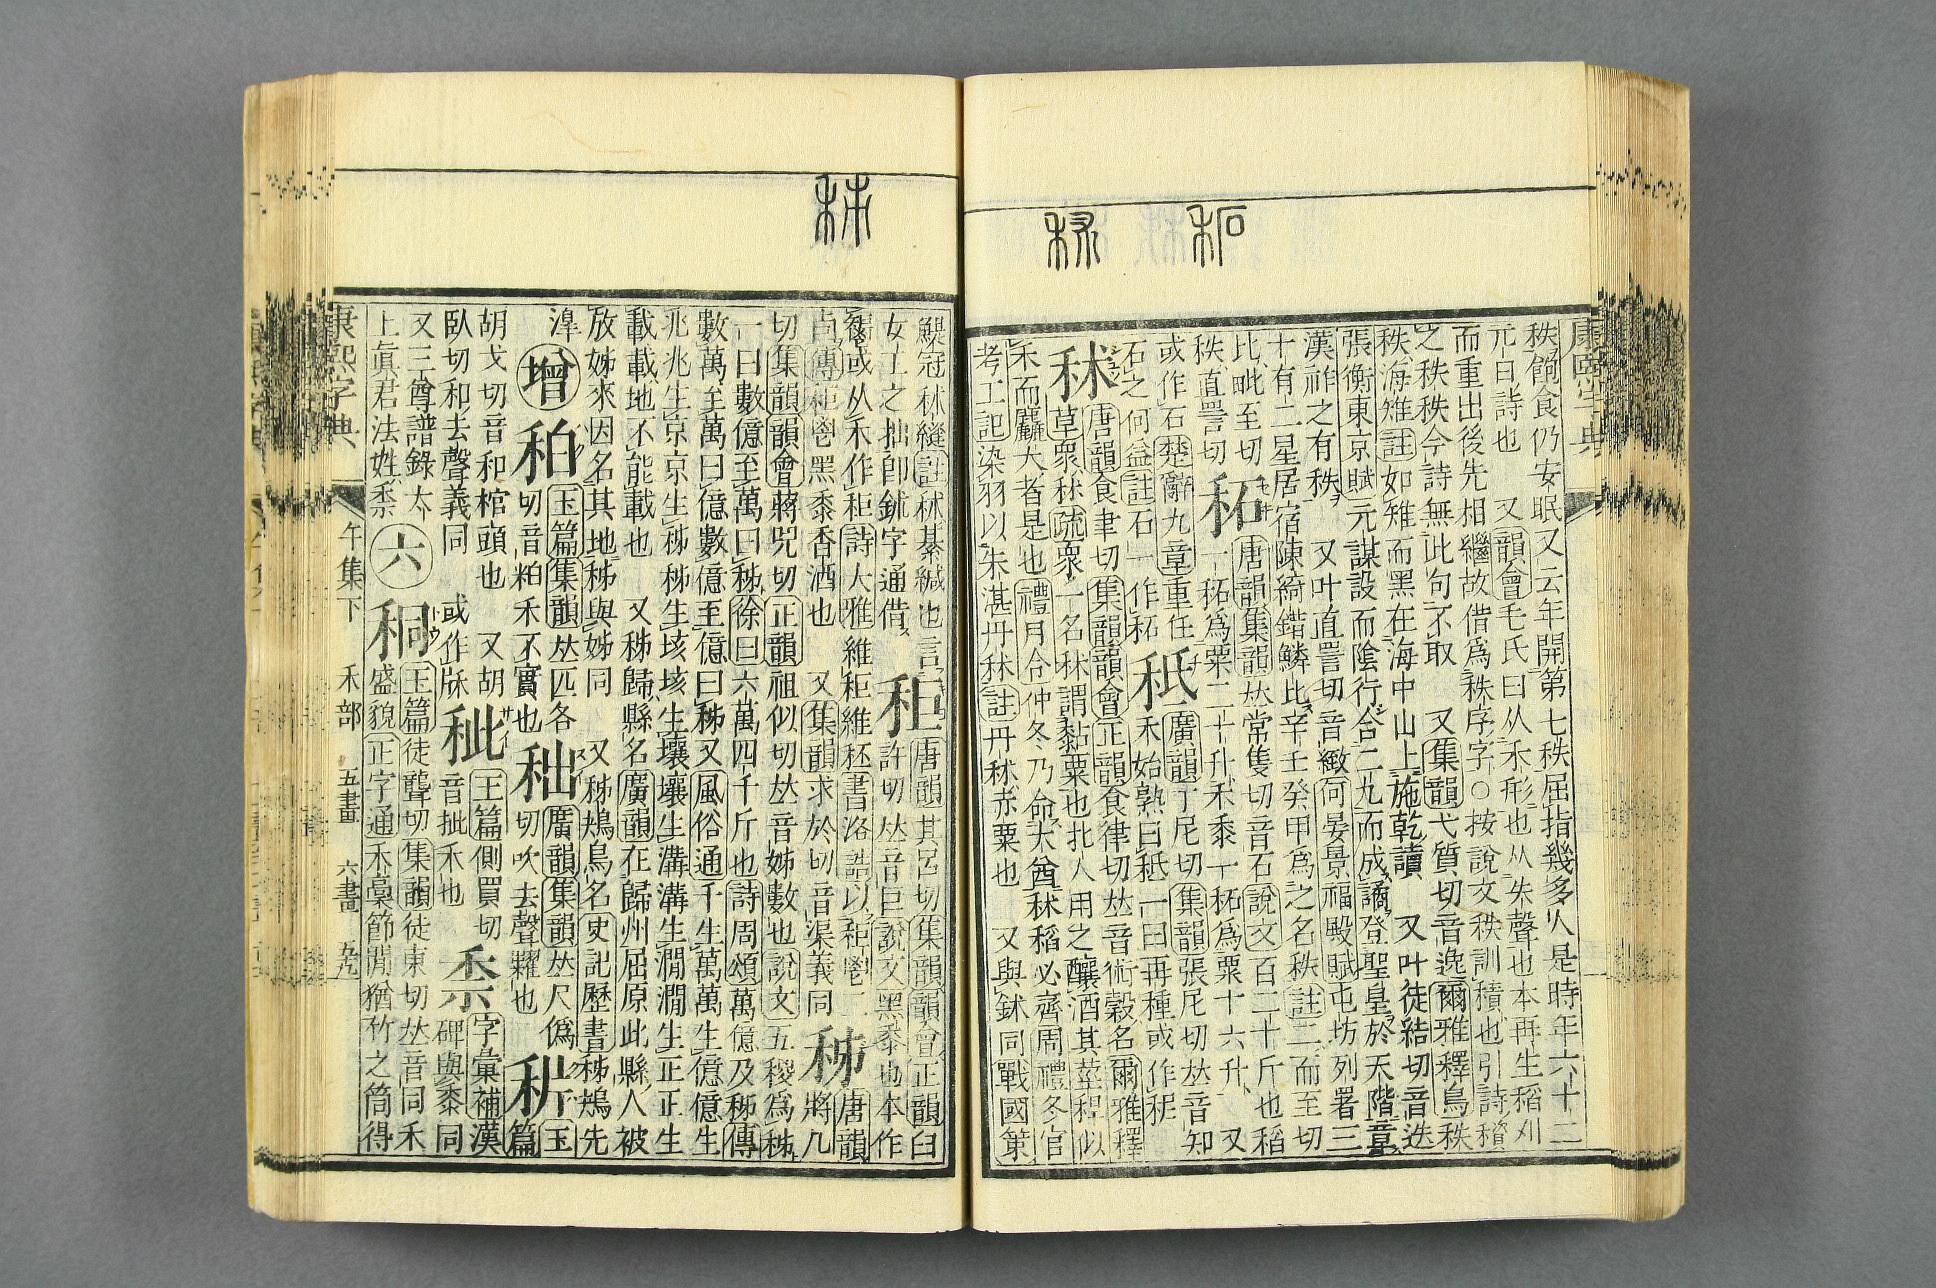 秫 䄷
秩飼食仍安眠又云年開第七秩屈指幾多人是時年六十二
元日詩也 又韻會毛氏曰从禾形也从失聲也本再生稻刈
而重出後先相繼故借爲秩序字○按說文秩訓積也引詩
之秩秩今詩無此句不取 又集韻弋質切音逸爾雅釋鳥秩
秩海雉註如雉而黑在海中山上施乾讀 又叶徒結切音迭
張衡東京賦元謀設而陰行合二九而成譎登聖皇於天階章
漢祚之有秩 又叶直詈切音緻何晏景福殿賦屯坊列署三
十有二星居宿陳綺錯鱗比辛壬癸甲爲之名秩註二而至切
比毗至切
秩直詈切
䄷 唐韻集韻𠀤常隻切音石說文百二十斤也稻
一䄷爲粟二十升禾黍一䄷爲粟十六升 又
或作石楚辭九章重任
石之何益註石一作䄷
秖 廣韻丁尼切集韻張尼切𠀤音知
禾始熟曰秖一曰再種或作
秫 唐韻食聿切集韻韻會正韻食律切𠀤音術穀名爾雅釋
草衆秫疏衆一名秫謂黏粟也北人用之釀酒其莖稈似
禾而麤大者是也禮月令仲冬乃命大酋秫稻必齊周禮冬官
考工記染羽以朱湛丹秫註丹秫赤粟也 又與鉥同戰國策
鯷冠秫縫註秫綦鍼也言
女工之拙卽鉥字通借
秬 唐韻其呂切集韻韻會正韻臼
許切𠀤音巨說文黑黍也本作
或从禾作秬詩大雅維秬維秠書洛誥以秬鬯二
卣傳秬鬯黑黍香酒也 又集韻求於切音渠義同
秭 唐韻
將几
切集韻韻會蔣兕切正韻祖似切𠀤音姊數也說文五稯爲秭
一曰數億至萬曰秭徐曰六萬四千斤也詩周頌萬億及秭傳
數萬至萬曰億數億至億曰秭又風俗通千生萬萬生億億生
兆兆生京京生秭秭生垓垓生壤壤生溝溝生澗澗生正正生
載載地不能載也 又秭歸縣名廣韻在歸州屈原此縣人被
放姊來因名其地秭與姊同 又秭鴂鳥名史記歷書秭鴂先
滜
增
䄸 玉篇集韻𠀤匹各
切音粕禾不實也
䄲 廣韻集韻𠀤尺僞
切吹去聲也
玉
篇
胡戈切音和棺頭也 又胡
臥切和去聲義同 或作
玉篇側買切
音批禾也
字彙補漢
碑與黍同
又三尊譜錄太
上眞君法姓
六
秱 玉篇徒聾切集韻徒東切𠀤音同禾
盛貌正字通禾稾節閒猶竹之筒得
康熙字典 午集下 禾部 五畫 六畫